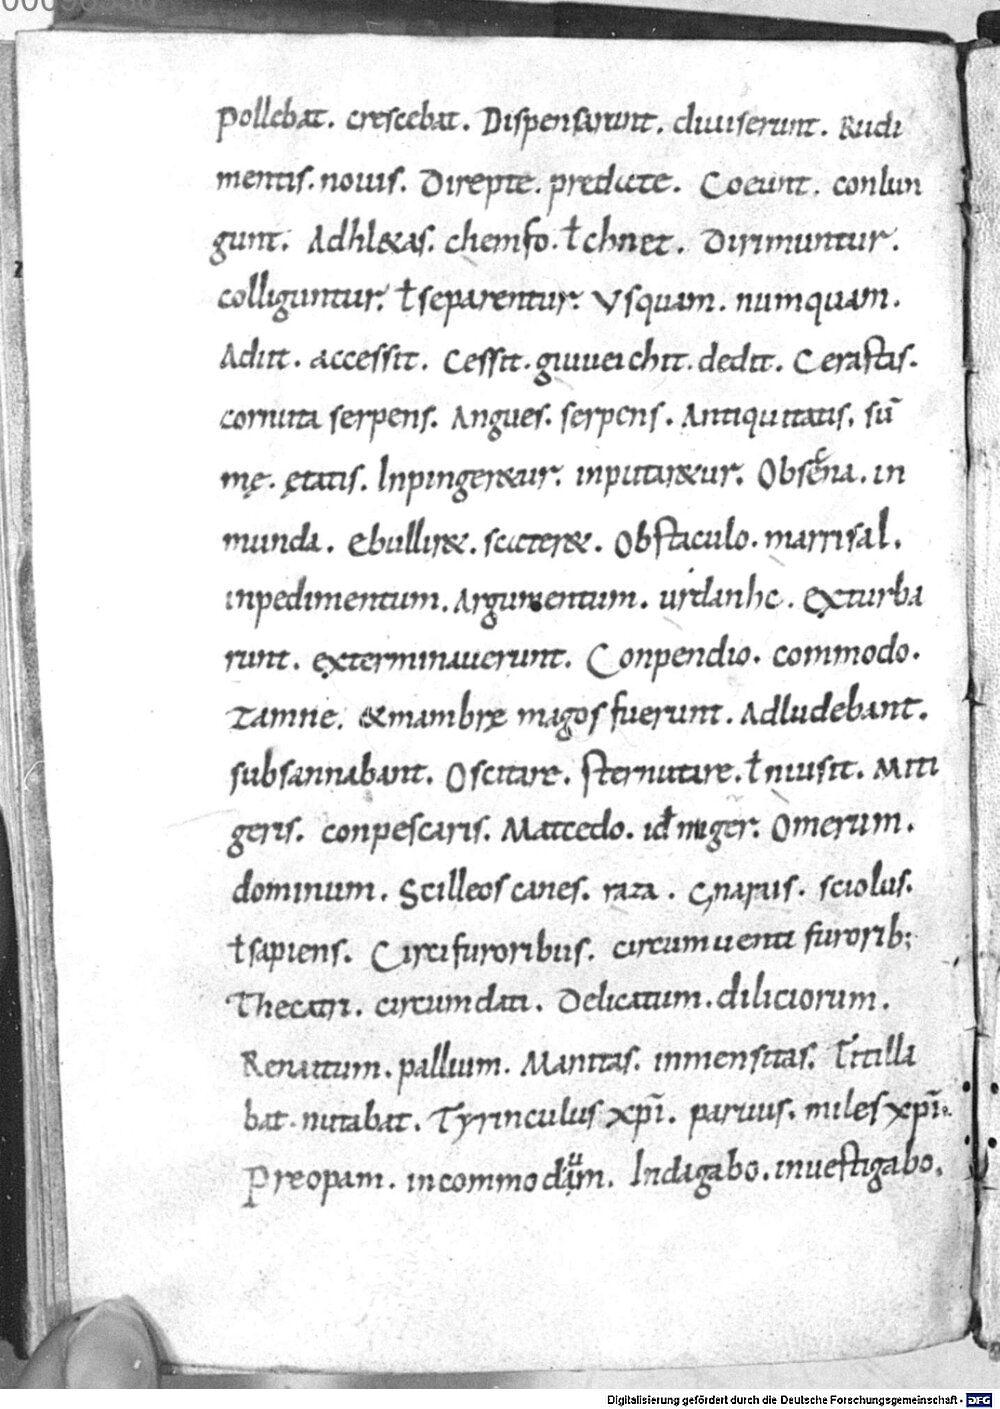 Pollebat. crescebat. Dispensarunt. diuiserunt. Rudi
mentis. nouis. Direpte. predicte. Coeunt. coniun
gunt. Adhl&as. chemfo. ł chnet. Dirimuntur.
colliguntur. ł separentur. Vsquam. numquam.
Adiit. accessit. Cessit. giuueichit. dedit. Cerastis.
cornuta serpens. Angues. serpens. Antiquitatis. sū
mę. ętatis. Inpinger&ur. inputar&ur. Obscena. in
munda. Ebullir&. scater&. Obstaculo. marrisal.
inpedimentum. Argumentum. urdanhc. Exturba
runt. exterminauerunt. Conpendio. commodo.
Iamne. &mambre magos fuerunt. Adludebant.
subsannabant. Oscitare. sternutare. ł niusit. Miti
geris. conpescaris. Matcedo. id niger. Omerum.
dominum. Scilleos canes. raza. Gnarus. sciolus.
ł sapiens. Circifuroribus. circumuenti furorib;
Thecatri. circumdati. Delicatum. diliciorum.
Renatium. pallium. Manitas. inmensitas. Titilla
bat. nutabat. Tyrinculus xp̄i. paruus. miles xp̄i.
Preopam. incommodum. Indagabo. inuestigabo.
Digitalisierung gefördert durch die Deutsche Forschungsgemeinschaft - DFG